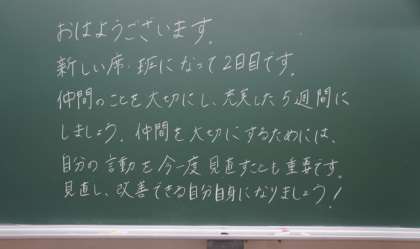 おはようございます。
新しい席・班になって2日目です。
仲間のことを大切にし、充実した5週間に
しましょう。仲間を大切にするためには、
自分の言動を今一度見直すことも重要です。
見直し、改善できる自分自身になりましょう!